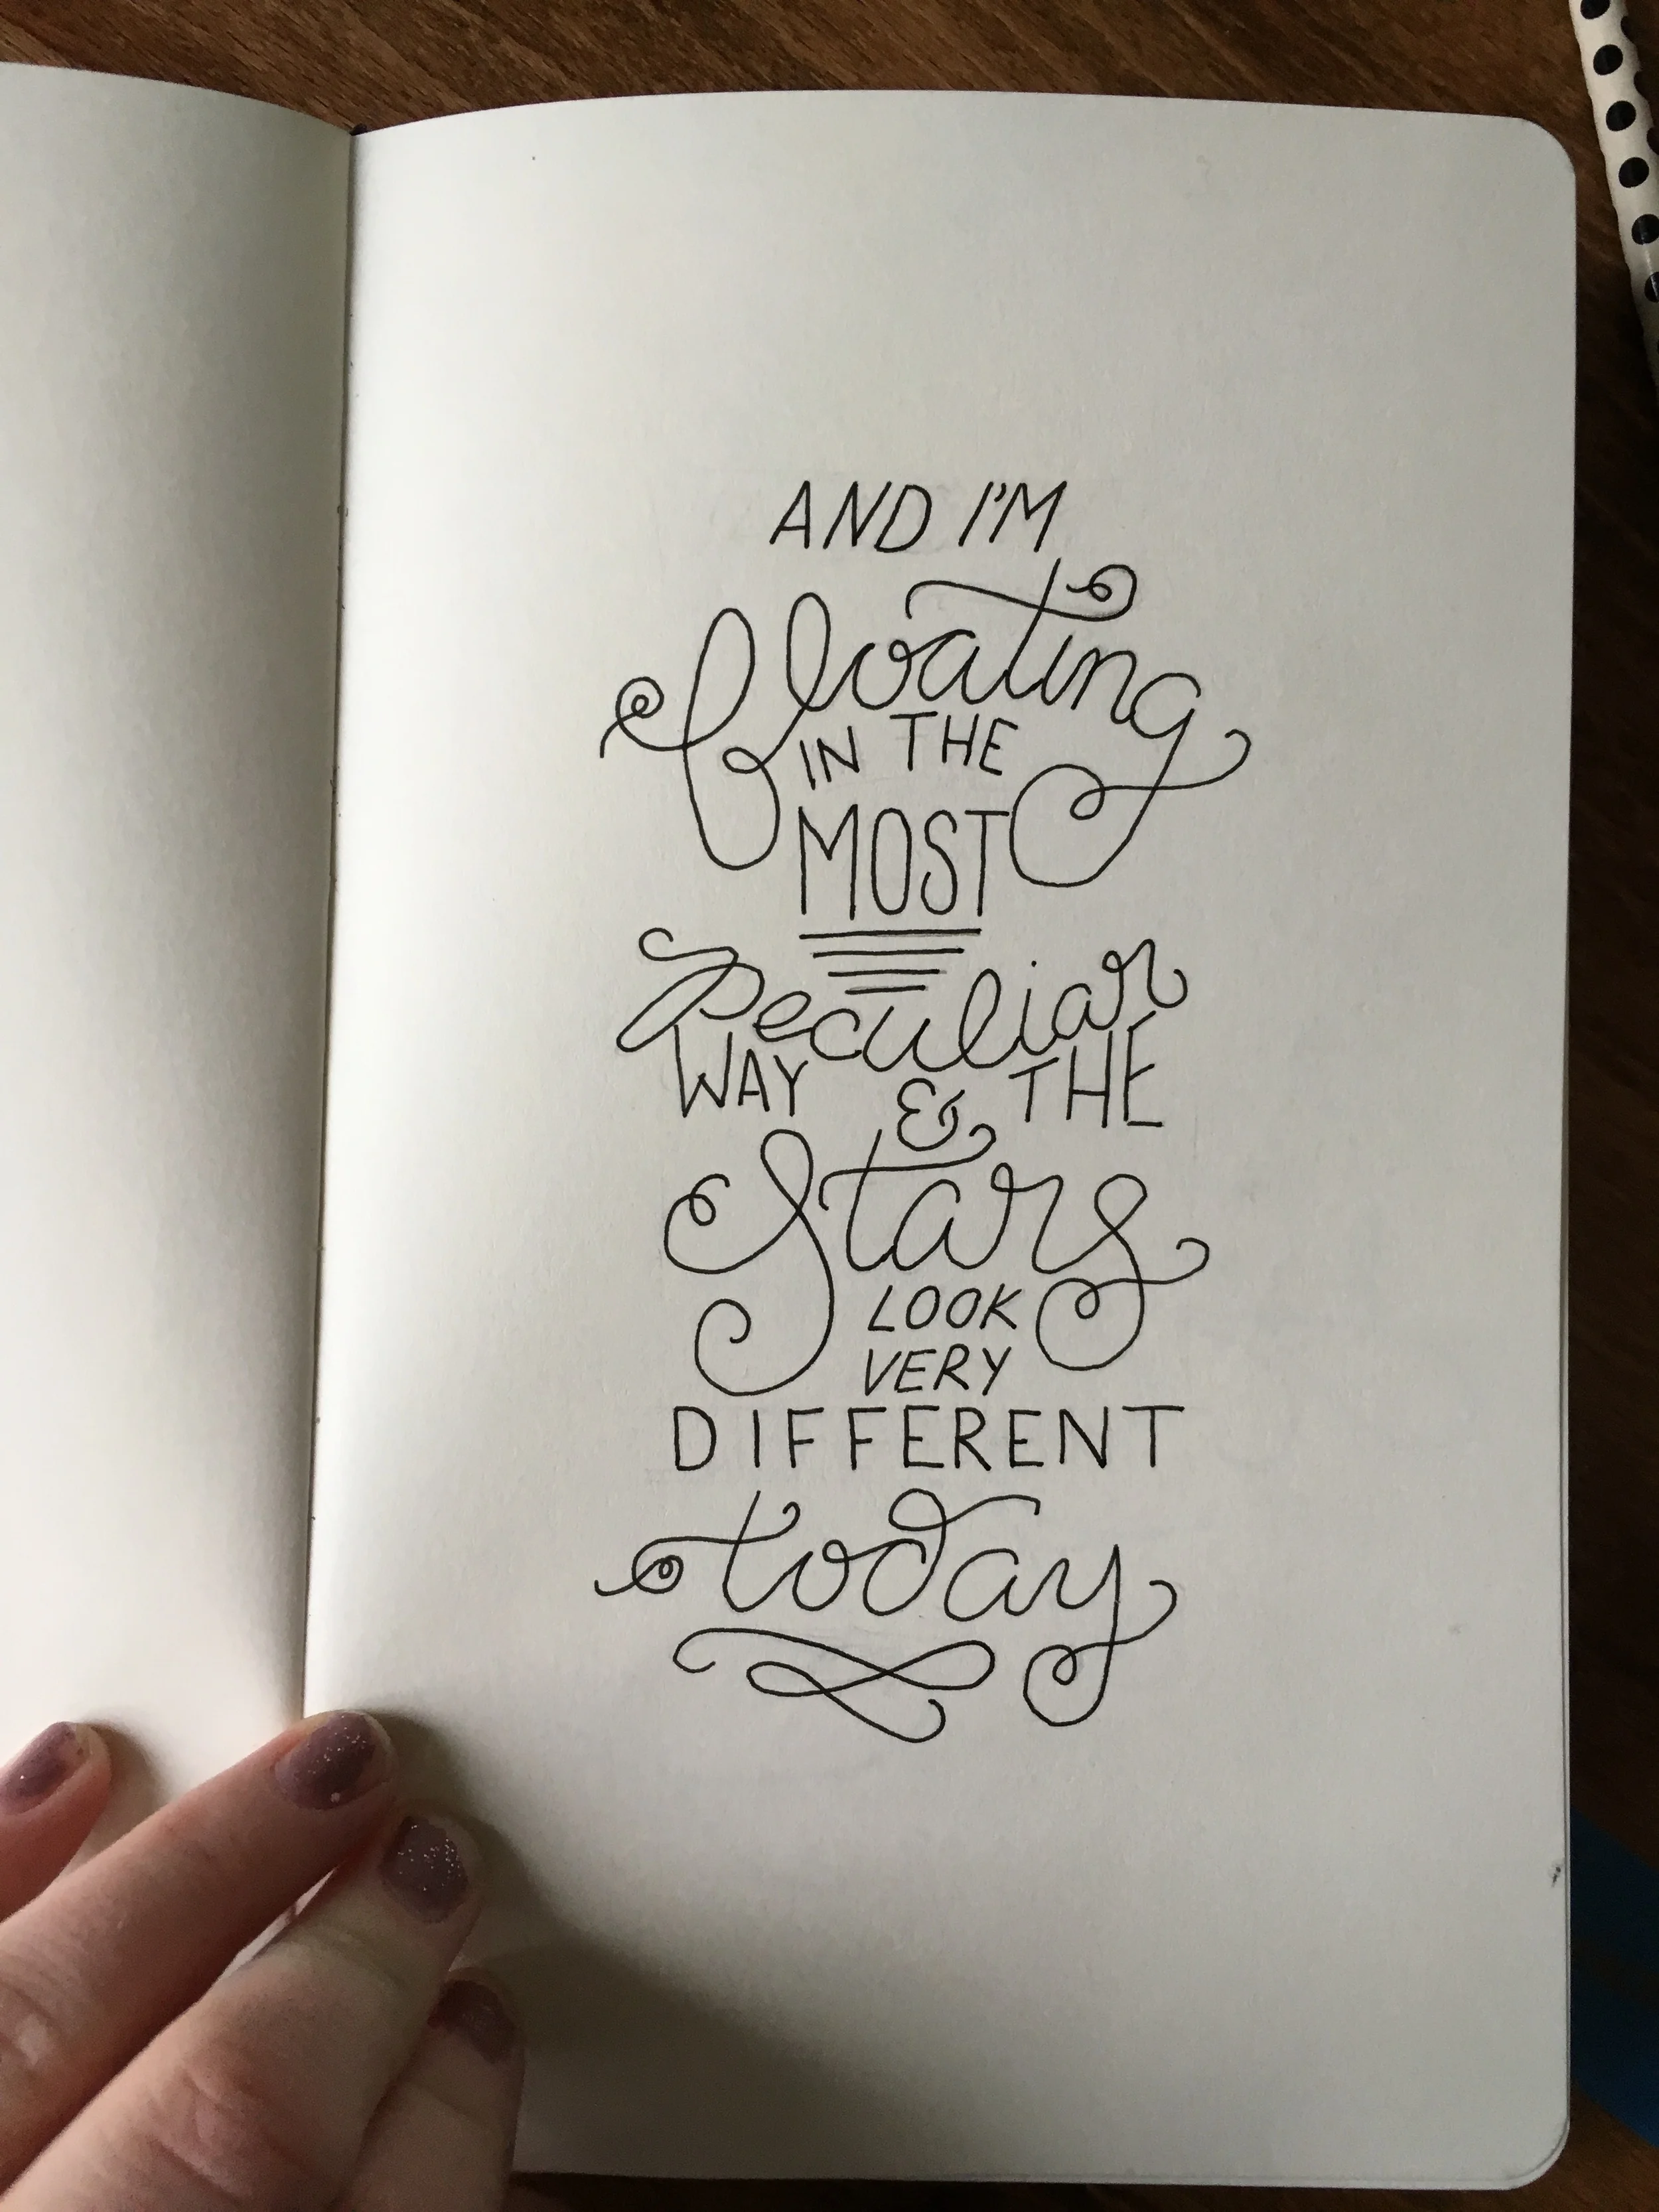 AND I'M
floating
IN THE
MOST
Peculiar
WAY & THE
Stars
LOOK
VERY
DIFFERENT
today